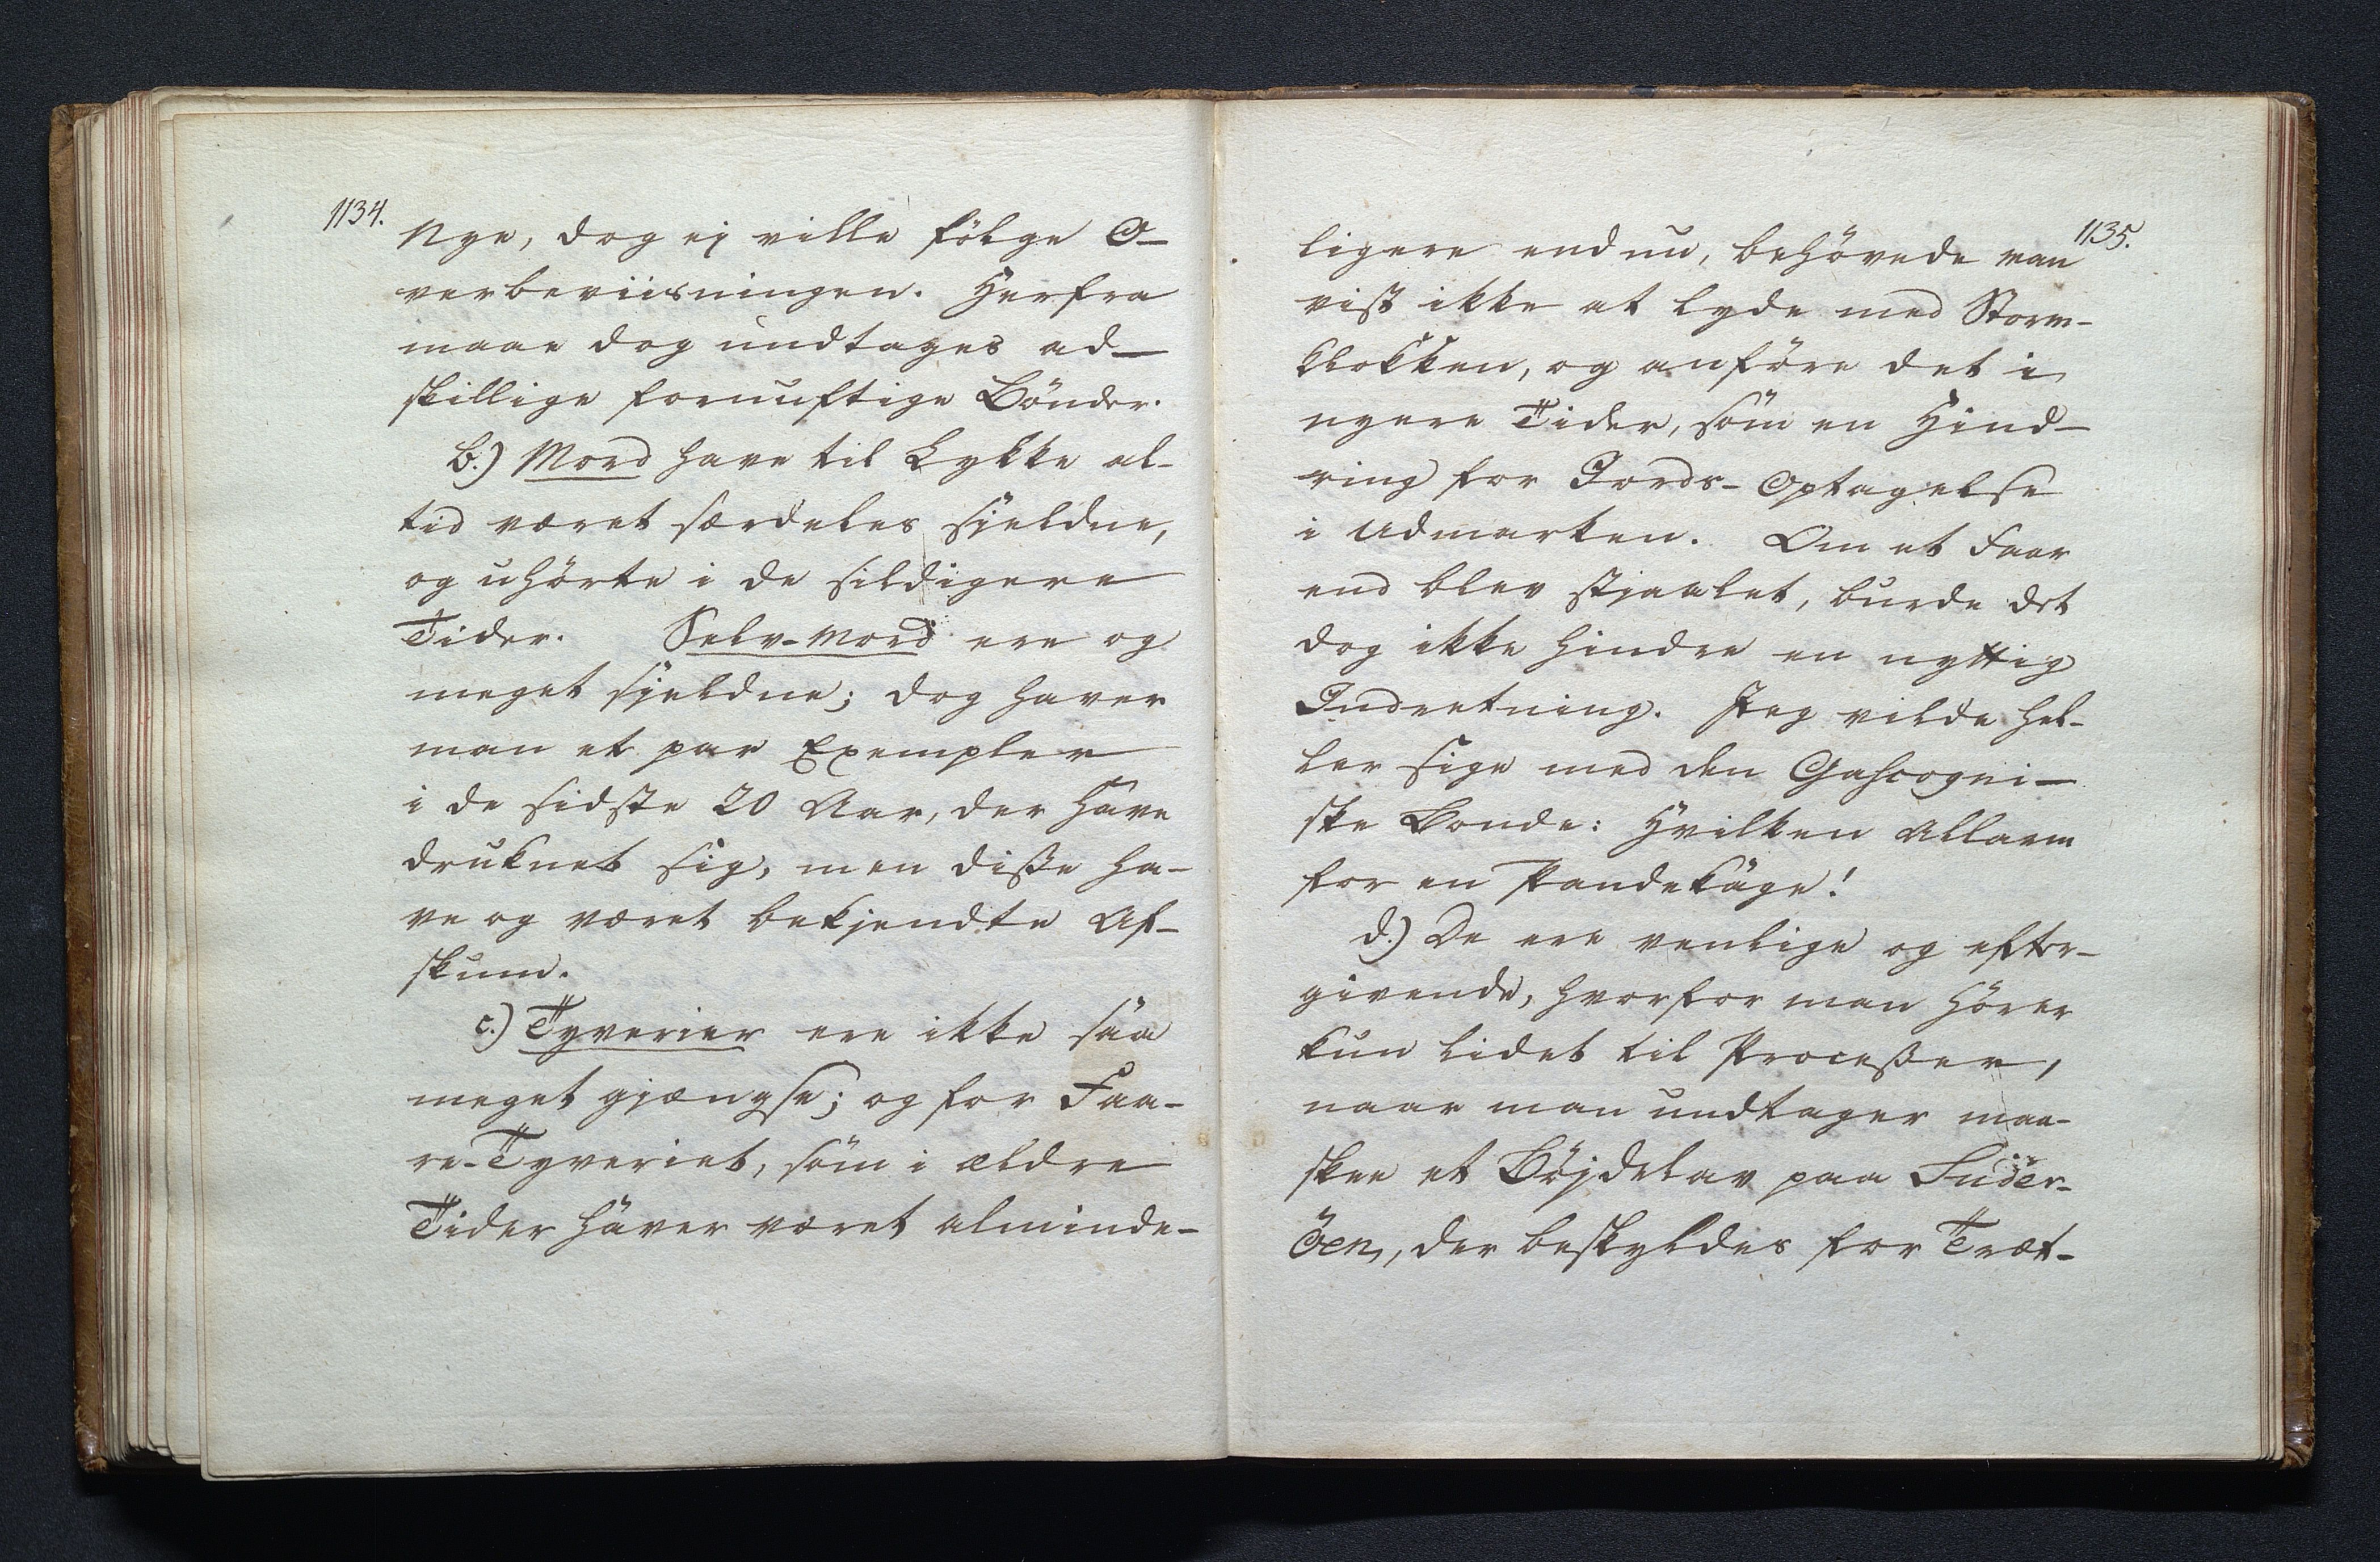 1134.
Nye, dog ej ville fölge O-
verbeviisningen. Herfra
maae dog undtages ad-
skillige fornuftige Bönder.
b.) Mord have til Lykke al-
tid været særdeles sjeldne,
og uhörte i de sildigere
Tider. Selv-Mord ere og
meget sjeldne; dog haver
man et par Exempler
i de sidste 20 Aar, der have
druknet sig, men diße ha-
ve og været bekjendte Af-
skum.
c.) Tyverier ere ikke saa
meget gjængse; og for Faa-
re-Tyveriet, som i ældre
Tider haver været alminde-
1135.
ligere end nu, behövede man
vist ikke at lyde med Storm-
klokken, og anföre det i
nyere Tider, som en Hind-
ring for Jords-Optagelse
i Udmarken. Om et Faar
end blev stjaalet, burde det
dog ikke hindre en nyttig
Indretning. Jeg vilde hel-
ler sige med den Gascogni-
ske Bonde: Hvilken Allarm
for en Pandekage!
d.) De ere venlige og efter-
givende, hvorfor man hörer
kun lidet til Proceßer,
naar man undtager maa-
skee et Böjdelav paa Suder-
Öen, der beskyldes for Træt-